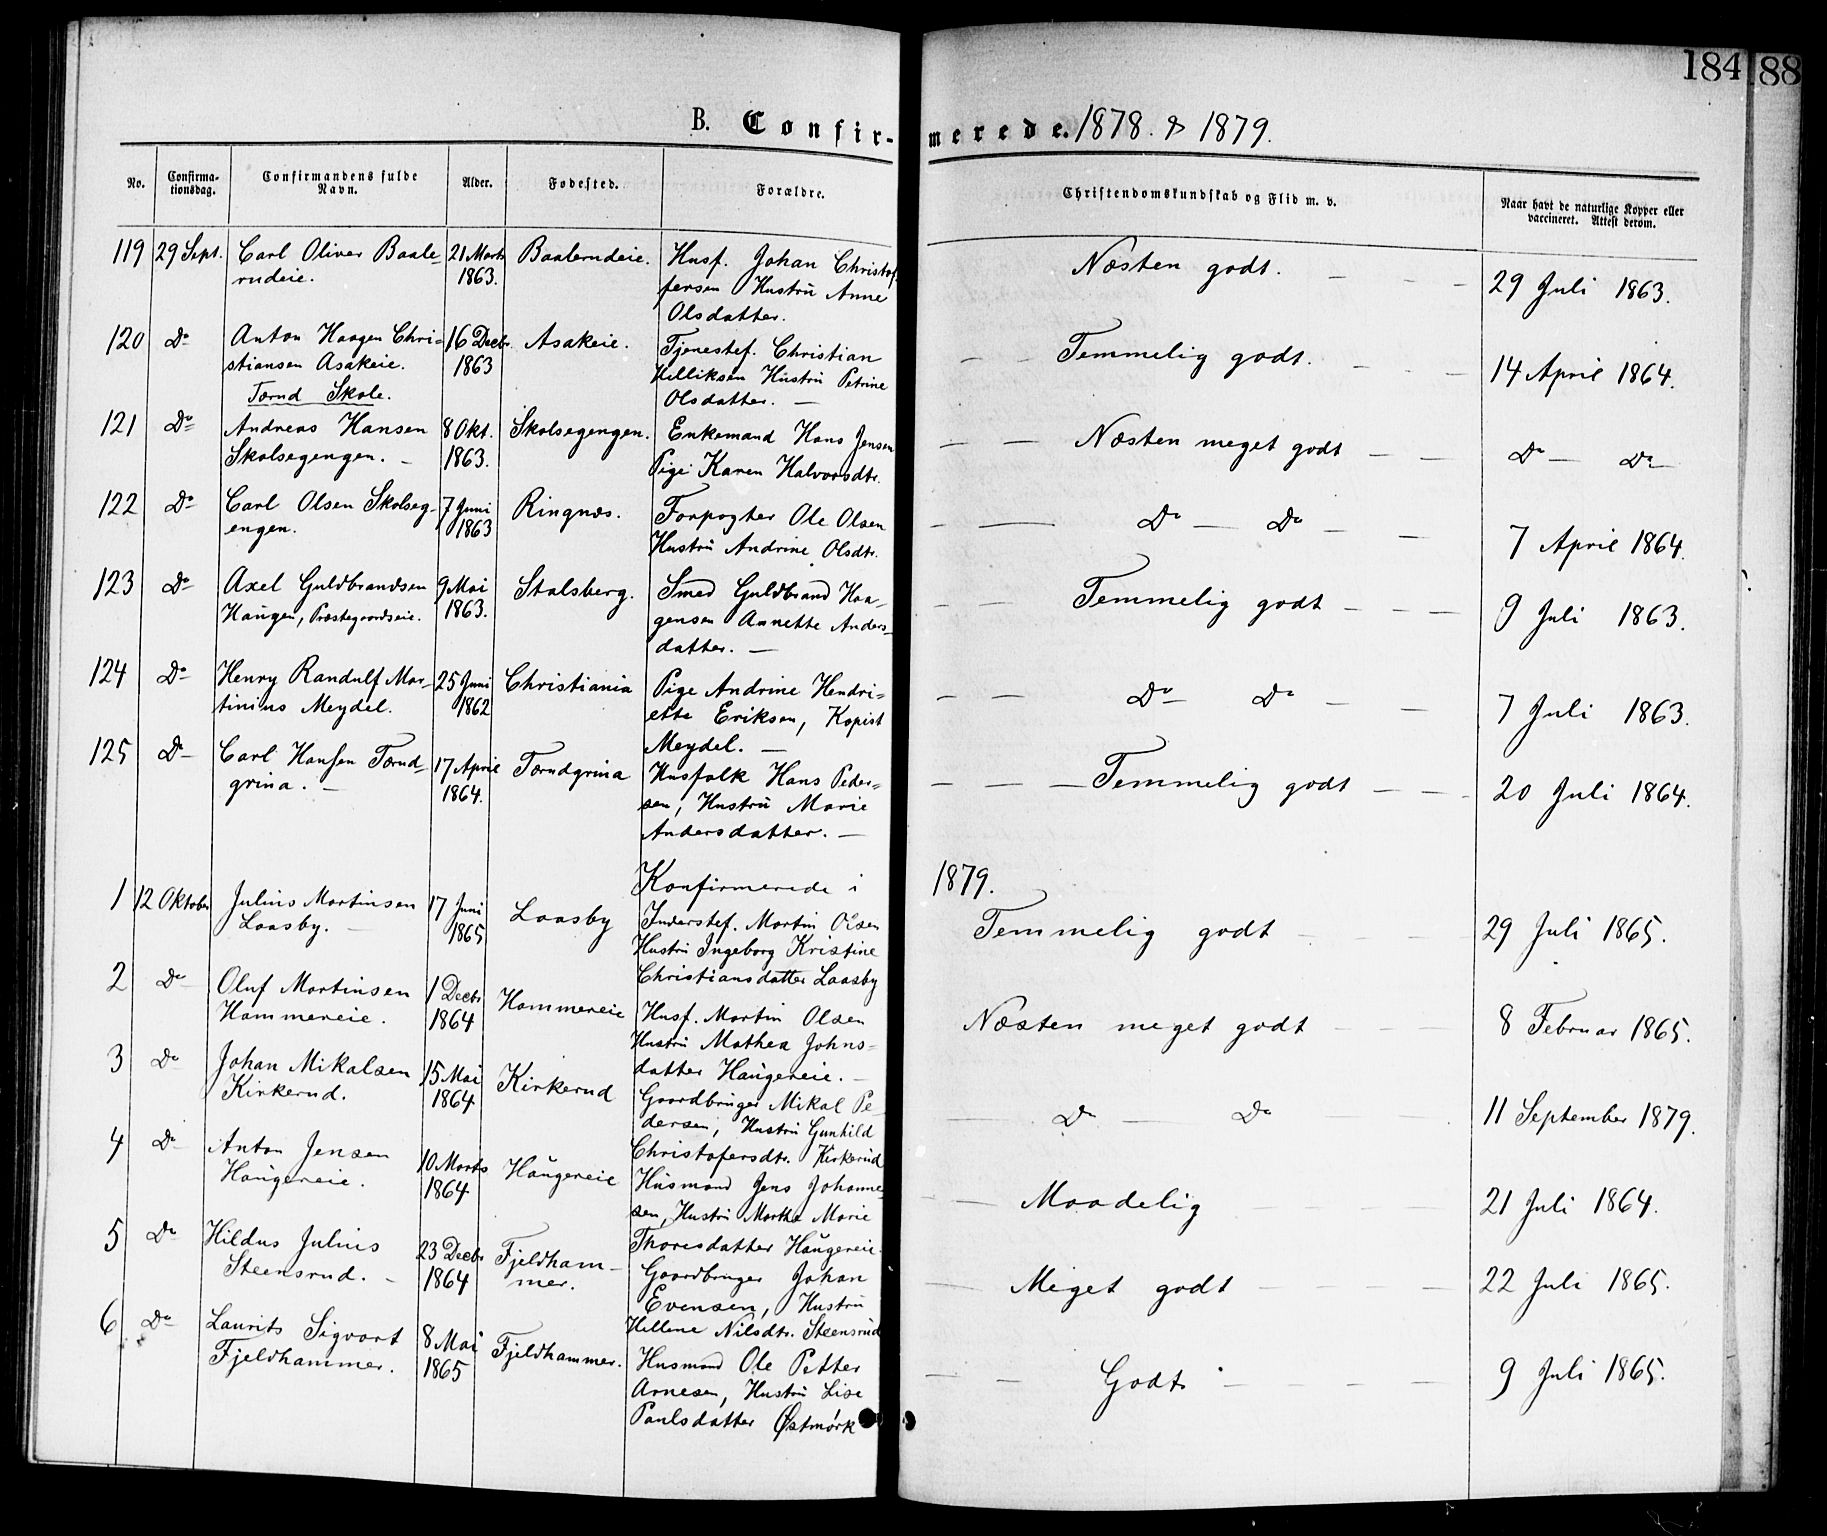 184 88
B. Confir- merede. 1878. & 1879.
No. Confirma- tionsdag. Confirmandens fulde Navn. Alder. Fødested. Forældre. Christendomskundskab og Flid m. v. Naar havt de naturlige Kopper eller vaccineret. Attest derom.
119 29 Sept. Carl Oliver Baale- 21 Marts Baalerudeie. Husf. Johan Christof- Næsten godt. - - - 29 Juli 1863.
rudeie. 1863. fersen Hustru Anne
Olsdatter.
120 Do Anton Haagen Chri- 16 Decbr. Asakeie. Tjenestef. Christian - - Temmelig godt. - - 14 April 1864.
stiansen Asakeie. 1863 Helliksen Hustru Petrine
Tornd Skole. Olsdatter. -
121 Do Andreas Hansen 8 Okt. Skolsegengen. Enkemand Hans Jensen - - Næsten meget godt - - Do - Do -
Skolsegengen. - 1863. Pige Karen Halvorsdtr.
122 Do Carl Olsen Skolseg- 7 Juni Ringnæs. Forpagter Ole Olsen - - Do - Do - - 7 April 1864.
engen. 1863 Hustru Andrine Olsdtr.
123 Do Axel Guldbrandsen 9 Mai Stalsberg. Smed Guldbrand Haa- - - Temmelig godt - - - 9 Juli 1863.
Haugen, Præstegaardseie. 1863. gensen Annette Anders-
datter. -
124 Do Henry Randulf Mar- 25 Juni Christiania Pige Andrine Hendri- - - Do - Do - - 7 Juli 1863.
tinius Meydel. 1862 ette Eriksen, Kopist
Meydel. -
125 Do Carl Hansen Tornd- 17 April Torndgrina Husfolk Hans Peder- - - - Temmelig godt - - - 20 Juli 1864.
grina. - 1864. sen, Hustru Marie
Andersdatter. -
Konfirmerede i 1879.
1 12 Oktober Julius Martinsen 17 Juni Laasby Inderstef. Martin Olsen Temmelig godt - - 29 Juli 1865.
Laasby. - 1865 Hustru Ingeborg Kristine
Christiansdatter Laasby
2 Do Oluf Martinsen 1 Decbr Hammereie Husf. Martin Olsen Næsten meget godt - - - 8 Februar 1865.
Hammereie. 1864 Hustru Mathea Johns-
datter Haugereie. -
3 Do Johan Mikalsen 15 Mai Kirkerud Gaardbruger Mikal Pe- - Do - Do - - 11 September 1879.
Kirkerud. 1864 dersen, Hustru Gunhild
Christofersdtr. Kirkerud
4 Do Anton Jensen 10 Marts Haugereie Husmand Jens Johanne- - - Maadelig - - - 21 Juli 1864.
Haugereie. 1864 sen, Hustru Marthe Marie
Thoresdatter Haugereie.
5 Do Hildus Julius 23 Decbr Fjeldham- Gaardbruger Johan - Meget godt - - - 22 Juli 1865.
Steensrud. - 1864 mer. Evensen, Hustru
Hellene Nilsdtr. Steensrud
6 Do Laurits Sigvart 8 Mai Fjeldhammer. Husmand Ole Petter - - Godt - - - - 9 Juli 1865.
Fjeldhammer. 1865 Arnesen, Hustru Lise
Paulsdatter Østmørk